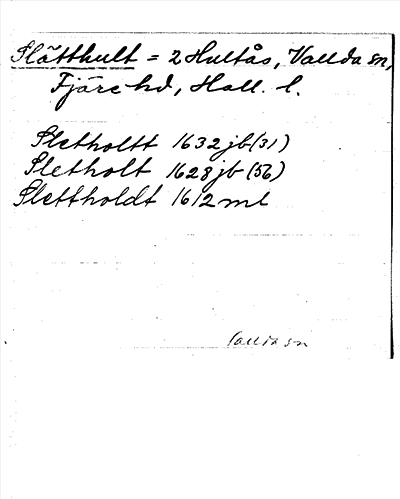 Slätthult = 2 Hultås, Vallda sn,
Fjäre hd, Hall. l.
Sletholtt 1632 jb (31)
Sletholt 1628 jb (56)
Slettholdt 1612 ml
Vallda sn